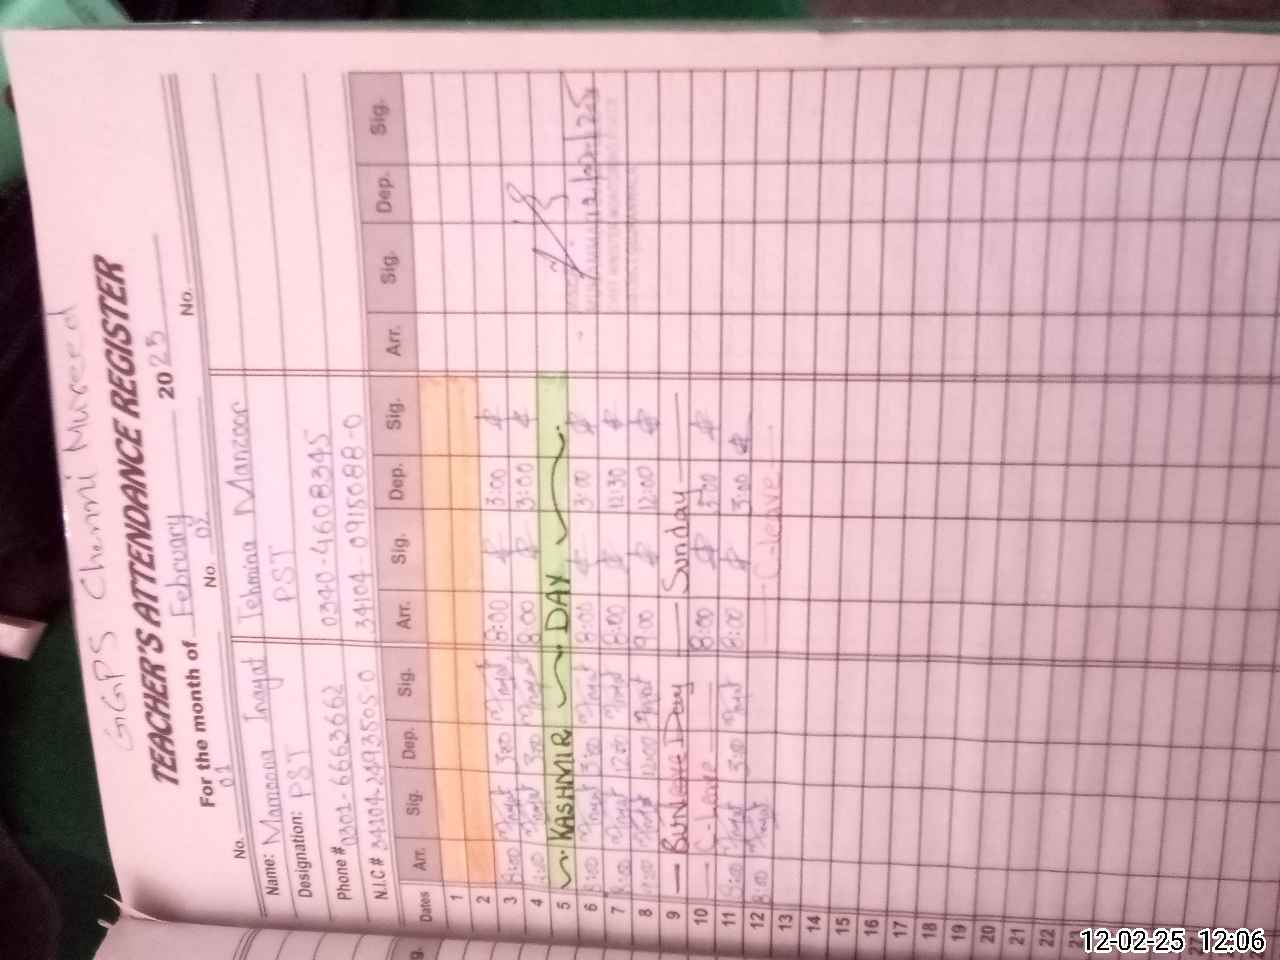 GGPS Chenni Mureed
TEACHER'S ATTENDANCE REGISTER
For the month of February 2025
No. 01 No. 02 No.
Name: Mamoona Inayat Tehmina Manzoor
Designation: PST PST
Phone # 0301-6663662 0340-4608345
N.I.C # 34104-2493505-0 34104-0915088-0
Dates Arr. Sig. Dep. Sig. Arr. Sig. Dep. Sig. Arr. Sig. Dep. Sig.
1
2
3 8:00 Inayat 3:00 Inayat 8:00 3:00
4 8:00 Inayat 3:00 Inayat 8:00 3:00
5 KASHMIR DAY
6 8:00 Inayat 3:00 Inayat 8:00 3:00
7 8:00 Inayat 12:30 Inayat 8:00 12:30
8 Inayat 12:00 Inayat 9:00 12:00
9 Day Sunday
10 C-Leave 8:00 3:00
11 8:00 Inayat 3:00 Inayat 8:00 3:00
12 8:00 Inayat C-leave
13
14
15
16
17
18
19
20
21
22
23
12/02/25
12-02-25 12:06